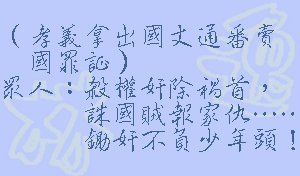 （孝義拿出國丈通番賣
國罪証）
眾人：殺權奸除禍首，
誅國賊報家仇……
鋤奸不負少年頭！